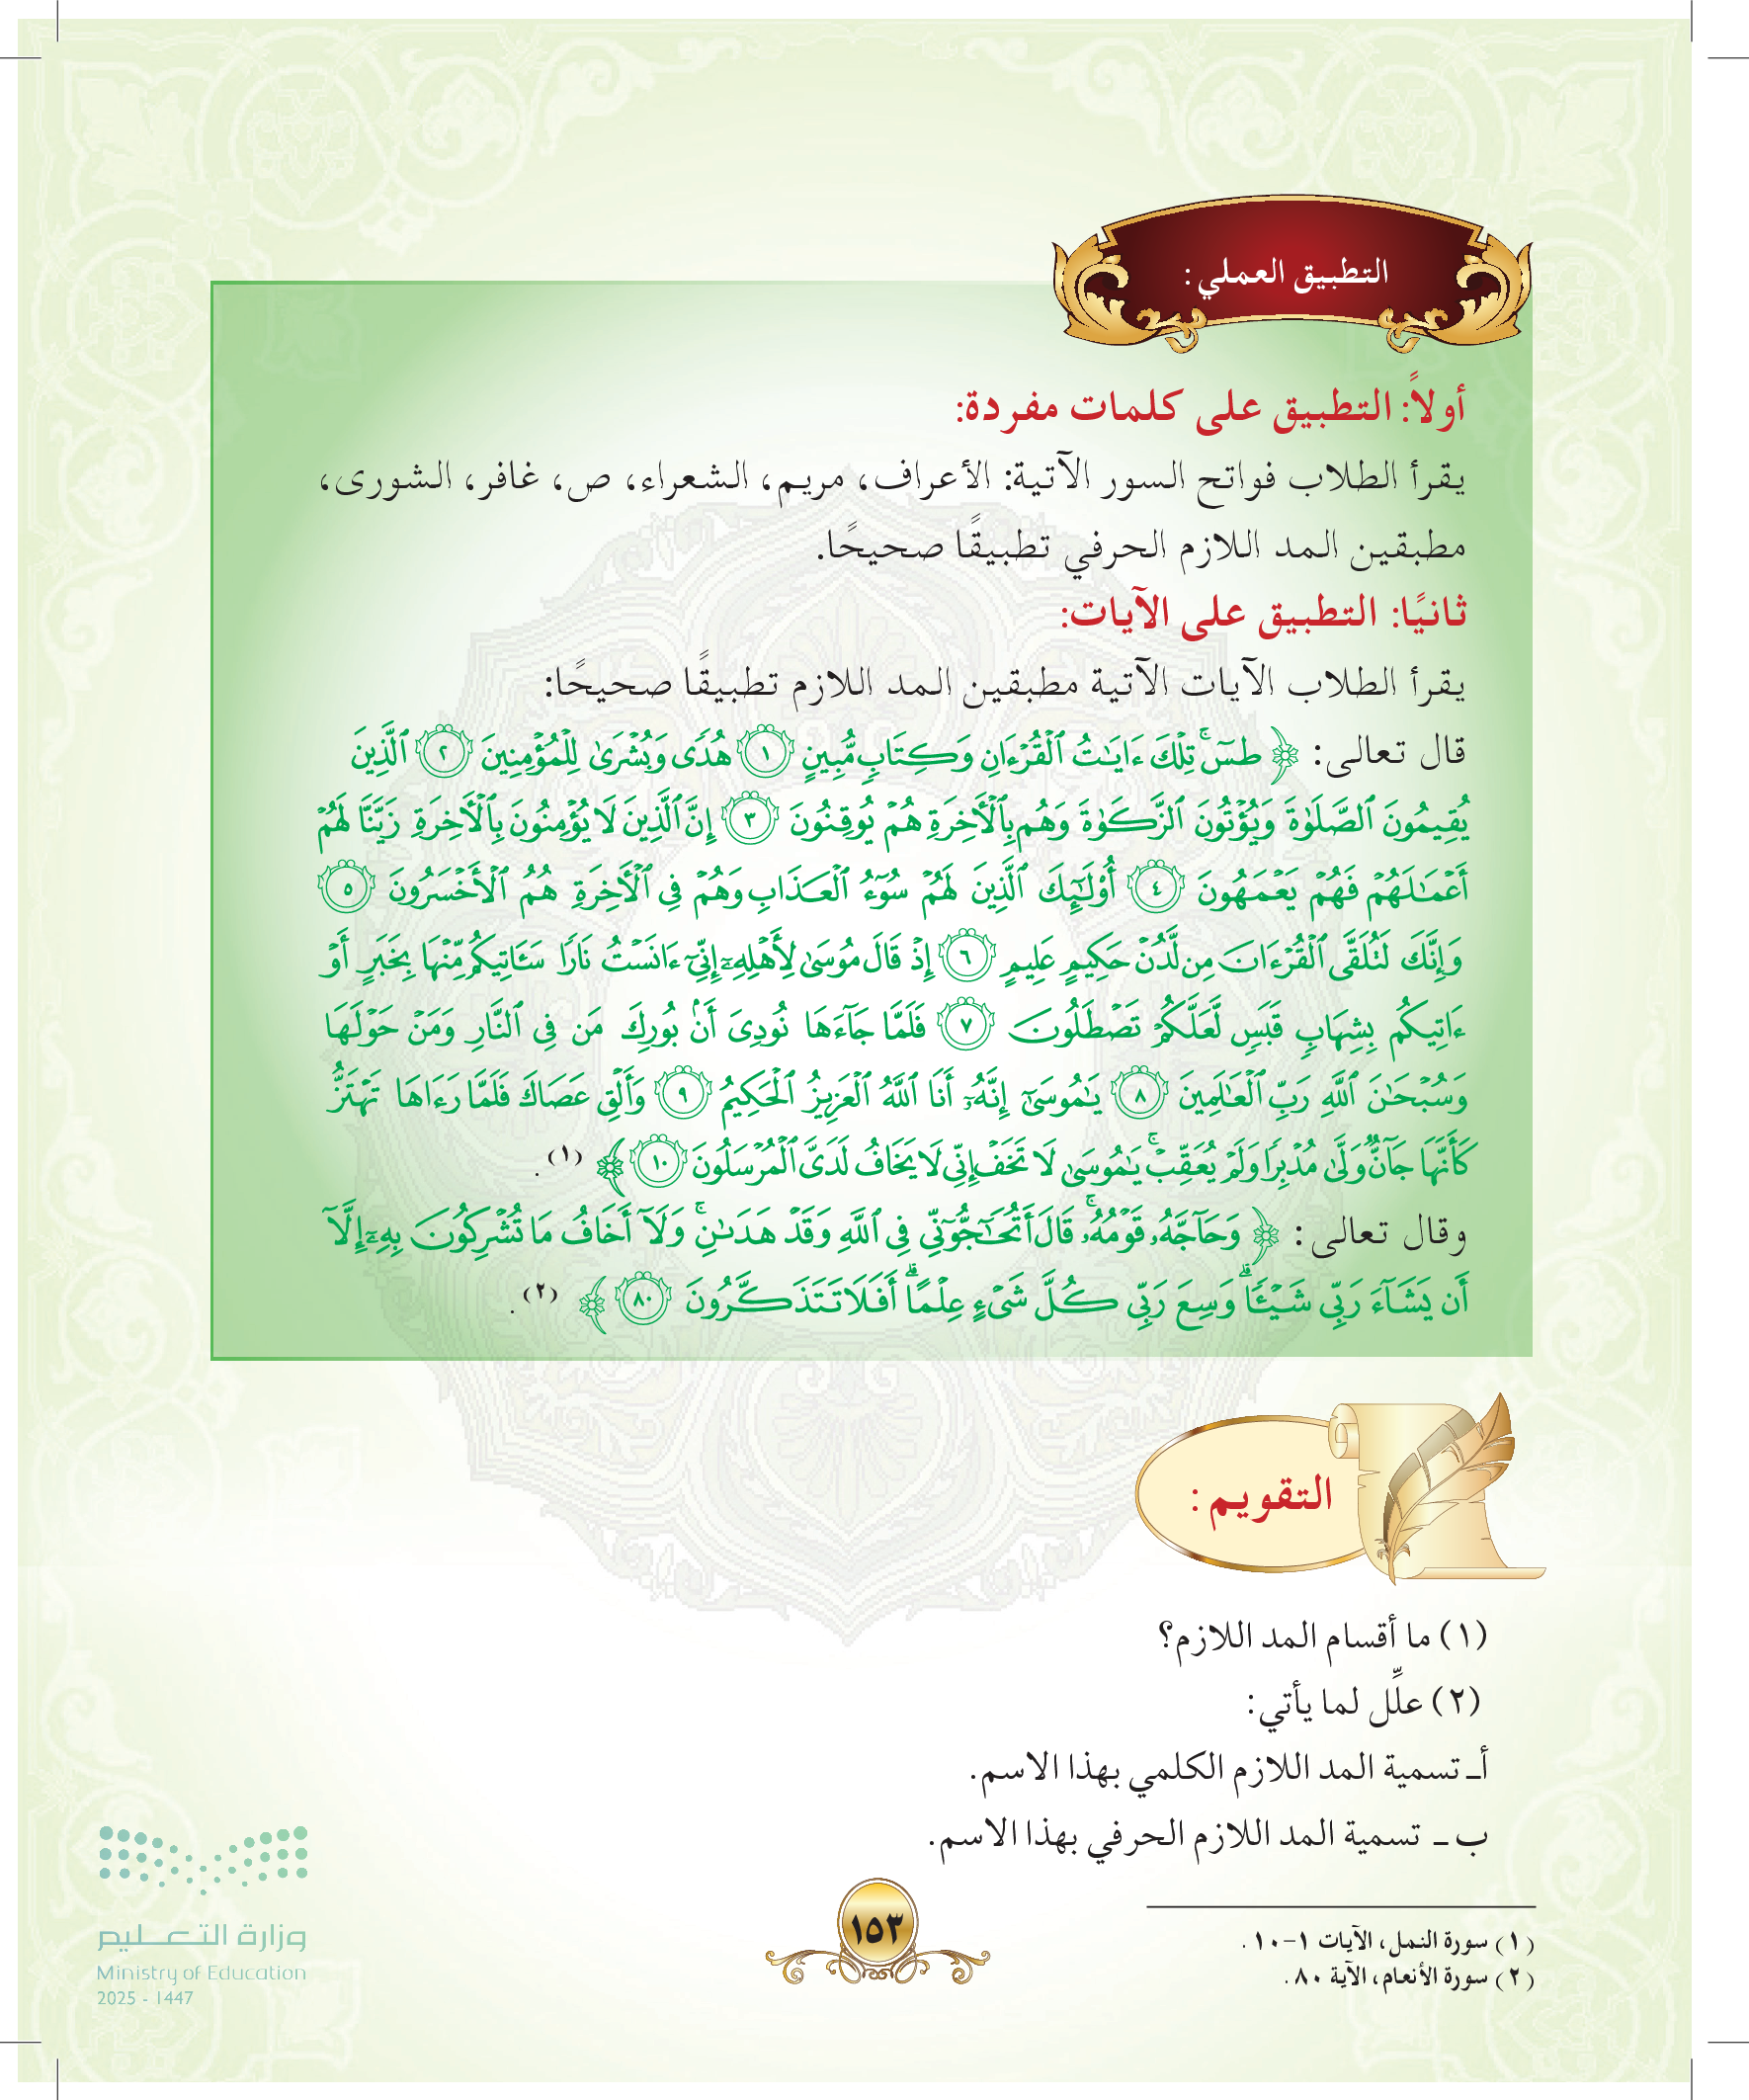 التطبيق العملي :
أولاً: التطبيق على كلمات مفردة:
يقرأ الطلاب فواتح السور الآتية: الأعراف، مريم، الشعراء، ص، غافر، الشورى،
مطبقين المد اللازم الحرفي تطبيقًا صحيحًا.
ثانيًا: التطبيق على الآيات:
يقرأ الطلاب الآيات الآتية مطبقين المد اللازم تطبيقًا صحيحًا:
قال تعالى: ﴿ طسٓۚ تِلۡكَ ءَايَٰتُ ٱلۡقُرۡءَانِ وَكِتَابٖ مُّبِينٍ ١ هُدٗى وَبُشۡرَىٰ لِلۡمُؤۡمِنِينَ ٢ ٱلَّذِينَ
يُقِيمُونَ ٱلصَّلَوٰةَ وَيُؤۡتُونَ ٱلزَّكَوٰةَ وَهُم بِٱلۡأٓخِرَةِ هُمۡ يُوقِنُونَ ٣ إِنَّ ٱلَّذِينَ لَا يُؤۡمِنُونَ بِٱلۡأٓخِرَةِ زَيَّنَّا لَهُمۡ
أَعۡمَٰلَهُمۡ فَهُمۡ يَعۡمَهُونَ ٤ أُوْلَٰٓئِكَ ٱلَّذِينَ لَهُمۡ سُوٓءُ ٱلۡعَذَابِ وَهُمۡ فِي ٱلۡأٓخِرَةِ هُمُ ٱلۡأَخۡسَرُونَ ٥
وَإِنَّكَ لَتُلَقَّى ٱلۡقُرۡءَانَ مِن لَّدُنۡ حَكِيمٍ عَلِيمٍ ٦ إِذۡ قَالَ مُوسَىٰ لِأَهۡلِهِۦٓ إِنِّيٓ ءَانَسۡتُ نَارٗا سَـَٔاتِيكُم مِّنۡهَا بِخَبَرٍ أَوۡ
ءَاتِيكُم بِشِهَابٖ قَبَسٖ لَّعَلَّكُمۡ تَصۡطَلُونَ ٧ فَلَمَّا جَآءَهَا نُودِيَ أَنۢ بُورِكَ مَن فِي ٱلنَّارِ وَمَنۡ حَوۡلَهَا
وَسُبۡحَٰنَ ٱللَّهِ رَبِّ ٱلۡعَٰلَمِينَ ٨ يَٰمُوسَىٰٓ إِنَّهُۥٓ أَنَا ٱللَّهُ ٱلۡعَزِيزُ ٱلۡحَكِيمُ ٩ وَأَلۡقِ عَصَاكَۚ فَلَمَّا رَءَاهَا تَهۡتَزُّ
كَأَنَّهَا جَآنّٞ وَلَّىٰ مُدۡبِرٗا وَلَمۡ يُعَقِّبۡۚ يَٰمُوسَىٰ لَا تَخَفۡ إِنِّي لَا يَخَافُ لَدَيَّ ٱلۡمُرۡسَلُونَ ١٠ ﴾ (١) .
وقال تعالى: ﴿ وَحَآجَّهُۥ قَوۡمُهُۥۚ قَالَ أَتُحَٰٓجُّوٓنِّي فِي ٱللَّهِ وَقَدۡ هَدَىٰنِۚ وَلَآ أَخَافُ مَا تُشۡرِكُونَ بِهِۦٓ إِلَّآ
أَن يَشَآءَ رَبِّي شَيۡـٔٗاۗ وَسِعَ رَبِّي كُلَّ شَيۡءٍ عِلۡمًاۗ أَفَلَا تَتَذَكَّرُونَ ٨٠ ﴾ (٢) .
التقويم :
(١) ما أقسام المد اللازم؟
(٢) علِّل لما يأتي:
أـ تسمية المد اللازم الكلمي بهذا الاسم.
ب ـ تسمية المد اللازم الحرفي بهذا الاسم.
(١) سورة النمل، الآيات ١-١٠ .
(٢) سورة الأنعام، الآية ٨٠ .
١٥٣
وزارة التعليم
Ministry of Education
2025 - 1447